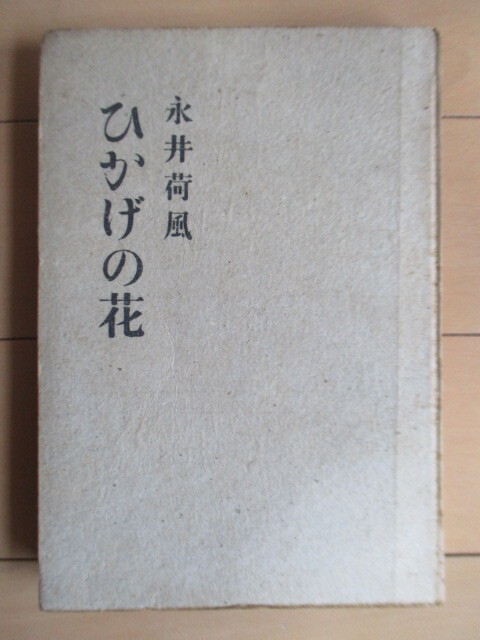 永井荷風
ひかげの花